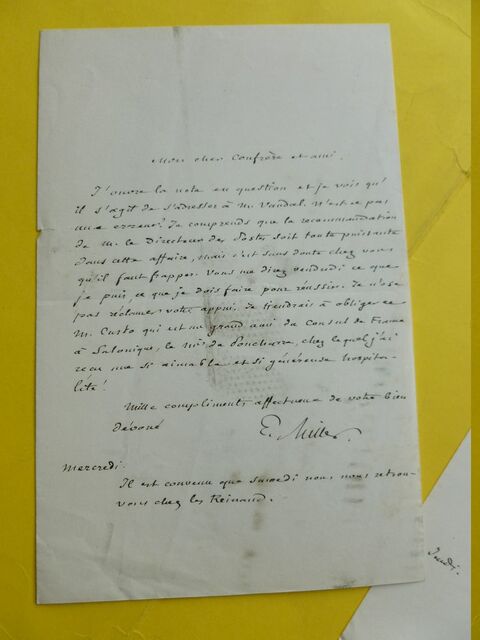 Mon cher Confrère et ami,
J'ouvre la note en question et je vois qu'
il s'agit de s'adresser à M. Vandal. N'est-ce pas
une erreur? Je comprends que la recommandation
de M. le Directeur des Postes soit toute puissante
dans cette affaire, mais c'est sans doute chez vous
qu'il faut frapper. Vous me direz vendredi ce que
je puis, ce que je dois faire pour réussir. Je n'ose
pas réclamer votre appui. Je tiendrais à obliger ce
M. Custo qui est un grand ami du Consul de France
à Salonique, le Mis de Poncharra, chez lequel j'ai
reçu une si aimable et si généreuse hospita-
lité!
Mille compliments affectueux de votre bien
dévoué
E. Miller.
Mercredi.
Il est convenu que samedi nous nous retrou-
vons chez les Reinaud.
Jeudi.